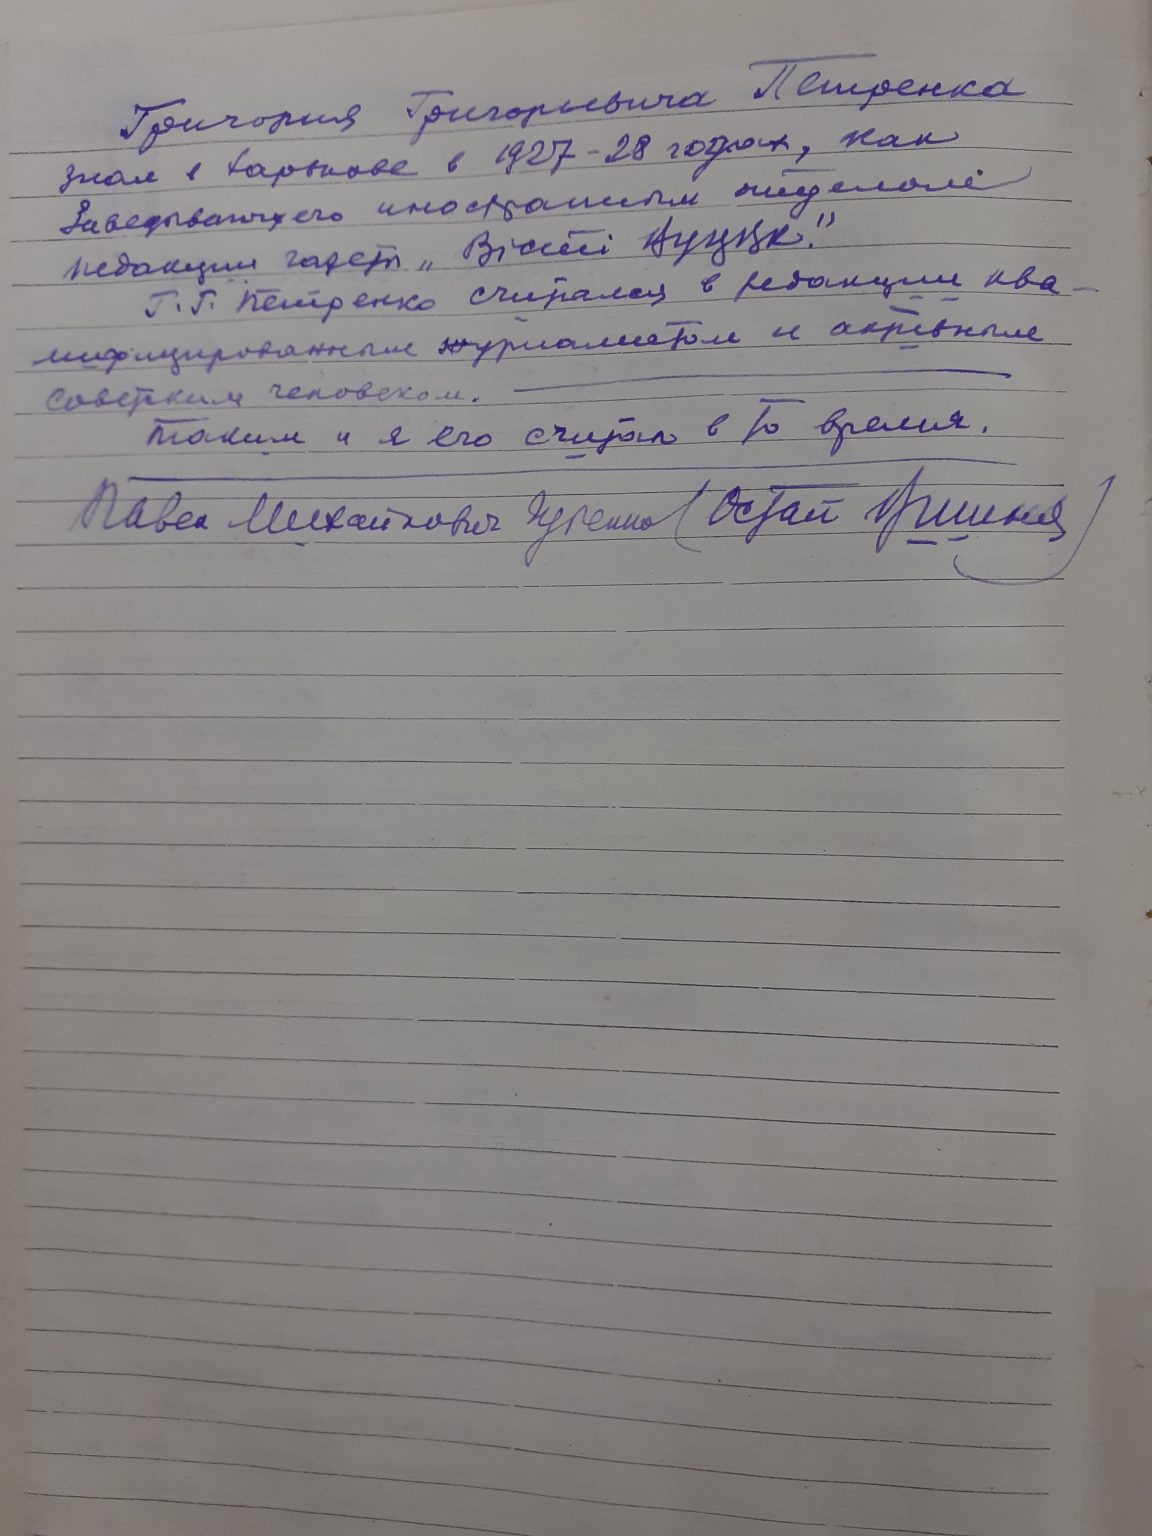 Григория Григорьевича Петренка
знал в Харькове в 1927-28 годах, как
Заведывающего иностранным
редакции газеты „Вісті ВУЦВК."
Г. Г. Петренко считался в редакции ква-
лифицированным журналистом и активным
советским человеком.
Таким и я его считал в то время.
Павел Михайлович Губенко (Остап Вишня)